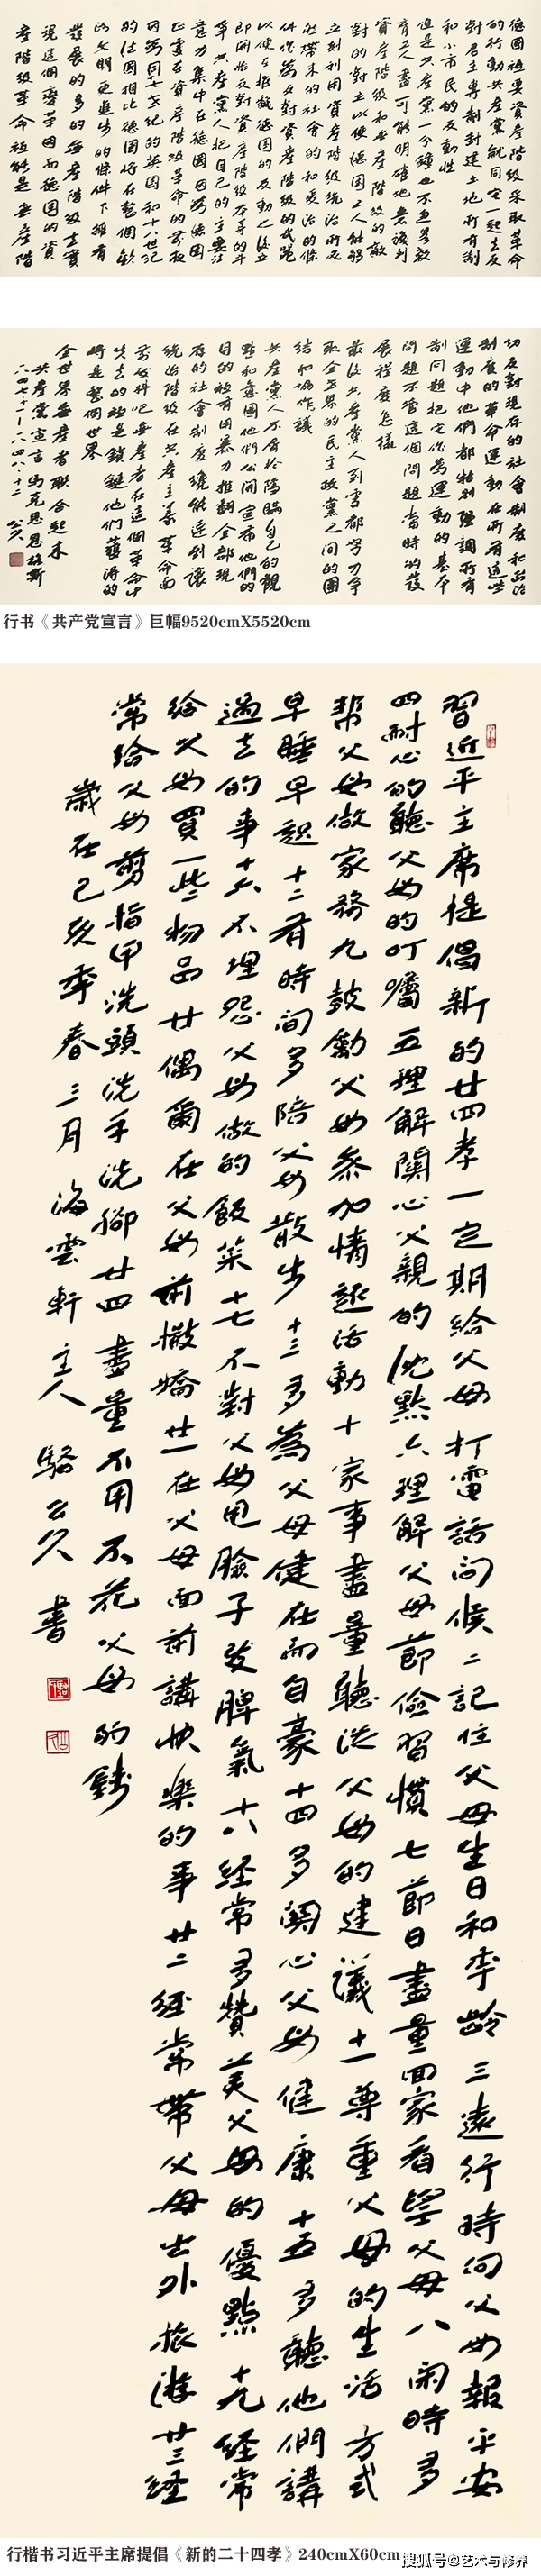 德國祇要資產階級采取革命
的行動共產黨就同它一起去反
對君主專制封建土地所有制
和小市民的反動性
但是共產黨一分鐘也不忽略教
育工人盡可能明確地意識到
資產階級和無產階級的敵
對的對立以便德國工人能够
立刻利用資產階級統治所必
然帶來的社會的和政治的條
件作為反對資產階級的武器
以便在推翻德國的反動之後立
即開始反對資產階級本身的斗
爭共產黨人把自己的主要注
意力集中在德國因為德國
正處在資產階級革命的前夜
因為同十七世紀的英國和十八世紀
的法國相比德國將在整個歐
洲文明更進步的條件下擁有
發展的多的無產階級去實
現這個變革因而德國的資
產階級革命祇能是無產階
切反對現存的社會制度和政治
制度的革命運動在所有這些
運動中他們都特別強調所有
制問題把它作為運動的基本
問題不管這個問題當時的發
展程度怎樣
最後共產黨人到處都努力爭
取全世界的民主政黨之間的團
結和協作議
共產黨人不屑於隱瞞自己的觀
點和意圖他們公開宣布他們的
目的祇有用暴力推翻全部現
存的社會制度纔能達到讓
統治階級在共產主義革命面
前發抖吧無產者在這個革命中
失去的祇是鎖鏈他們獲得的
將是整個世界
全世界無產者聯合起來
共產黨宣言馬克思恩格斯
公久
行书《共产党宣言》巨幅9520cmX5520cm
習近平主席提倡新的廿四孝一定期給父母打電話問候二記住父母生日和年齡三遠行時向父母報平安
四耐心的聽父母的叮囑五理解關心父親的沈默六理解父母節儉習慣七節日盡量回家看望父母八閑時多
幫父母做家務九鼓勵父母參加情趣活動十家事盡量聽從父母的建議十一尊重父母的生活方式
早睡早起十二有時間多陪父母散步十三多為父母健在而自豪十四多關心父母健康十五多聽他們講
過去的事十六不埋怨父母做的飯菜十七不對父母甩臉子發脾氣十八經常多贊美父母的優點十九經常
給父母買一些物品廿偶爾在父母前撒嬌廿一在父母面前講快樂的事廿二經常帶父母出外旅游廿三經
常給父母剪指甲洗頭洗手洗腳廿四盡量不用不花父母的錢
歲在己亥年春三月海雲軒主人駱公久書
行楷书习近平主席提倡《新的二十四孝》240cmX60cm
搜狐号@艺术与修养